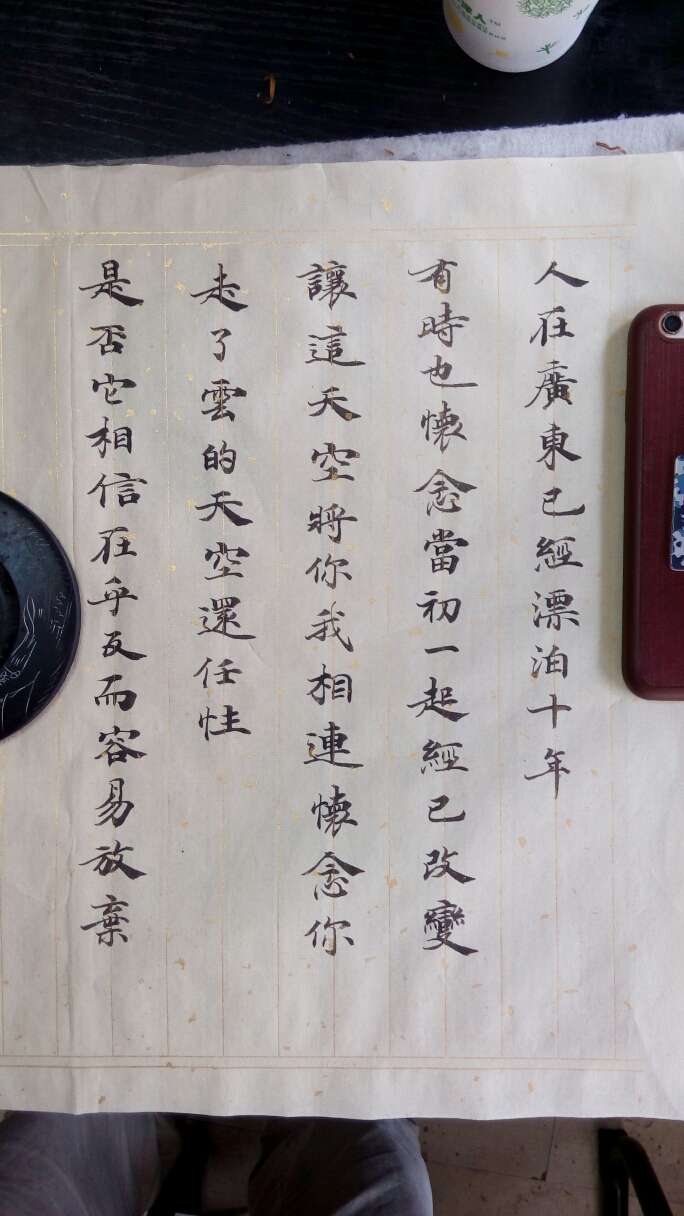 人在廣東已經漂泊十年
有時也懷念當初一起經已改變
讓這天空將你我相連懷念你
走了雲的天空還任性
是否它相信在乎反而容易放棄
人™